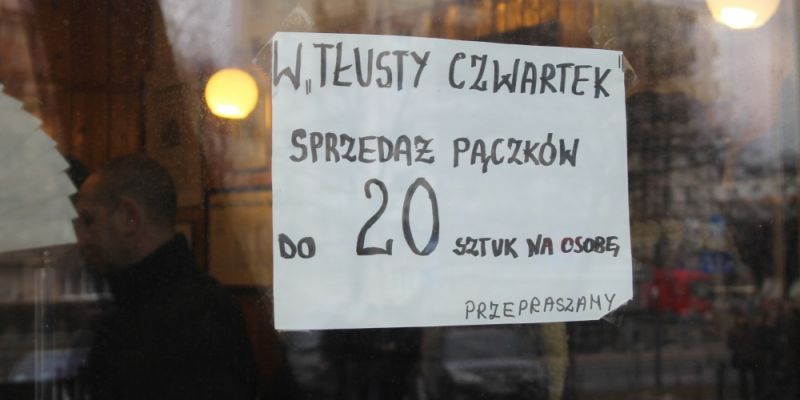 W „TŁUSTY CZWARTEK"
SPRZEDAŻ PĄCZKÓW
DO 20 SZTUK NA OSOBĘ
PRZEPRASZAMY